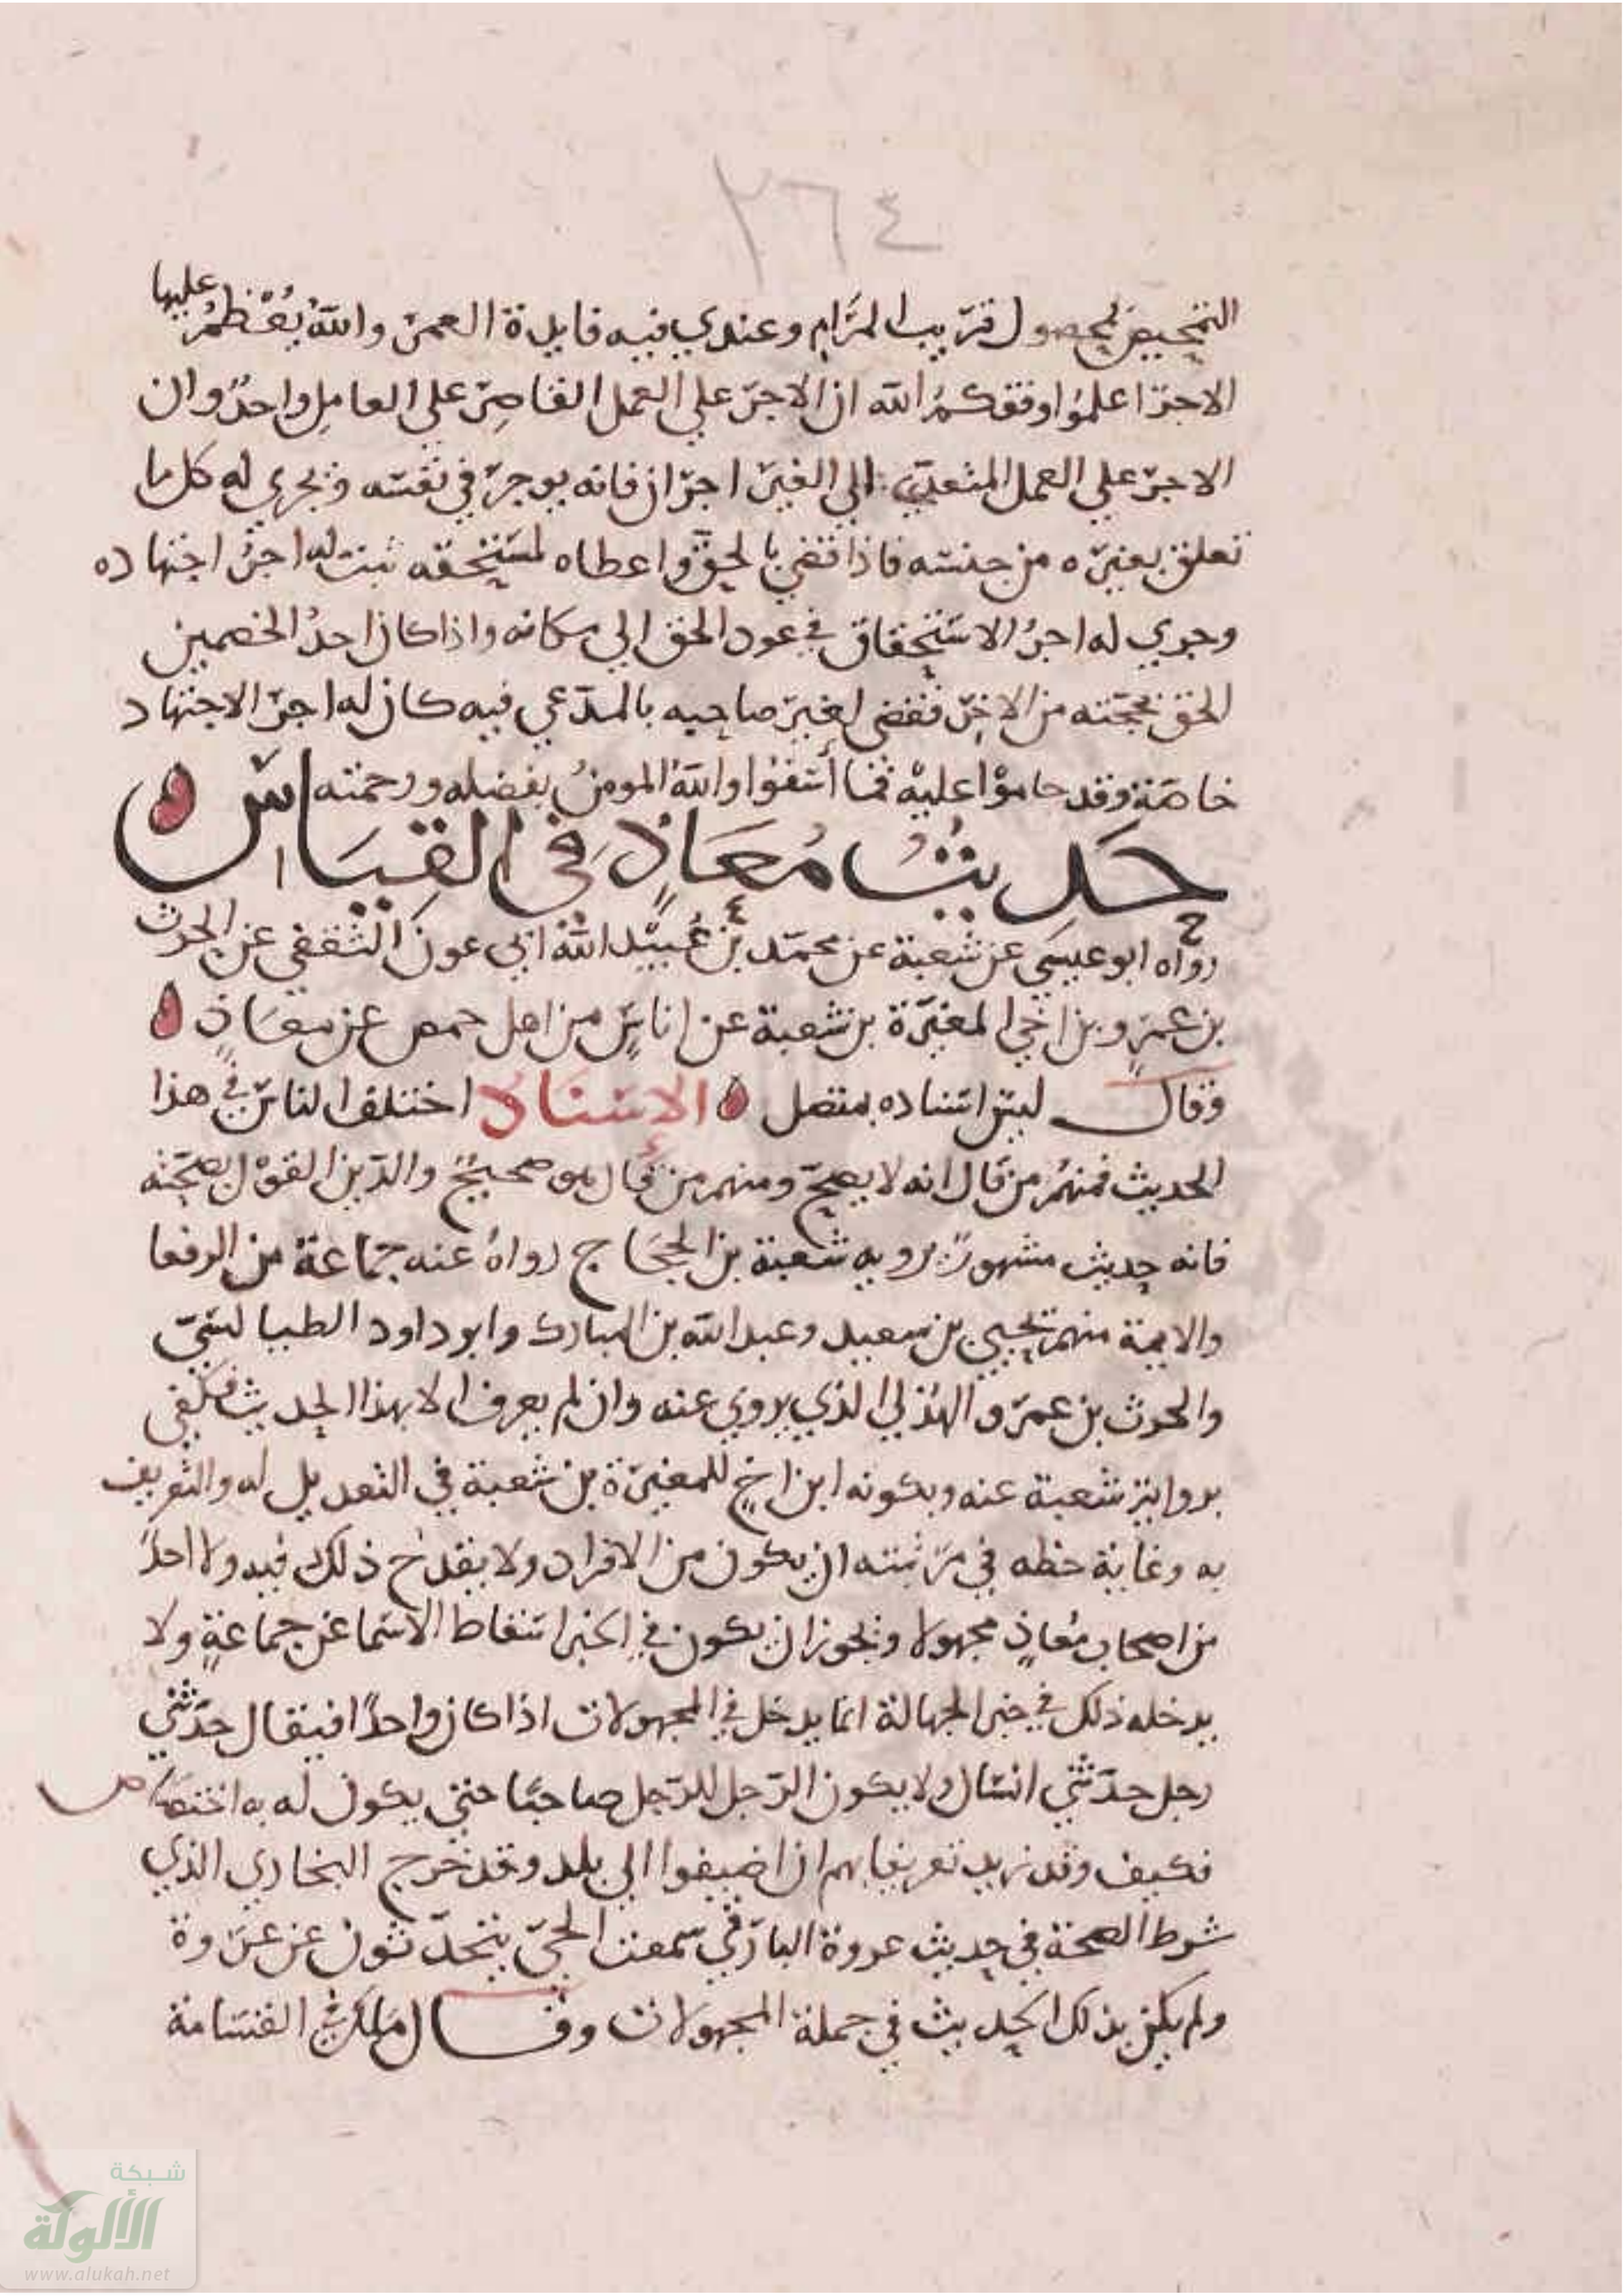 ٢٦٤
التمحيص لحصول قريب المرام وعندي فيه فايدة العمر والله يعظم عليها
الاجر اعلموا وفقكم الله ان الاجر علي العمل القاصر علي العامل واحد وان
الاجر علي العمل المتعدي الي الغير اجران فانه يوجر في نفسه ويجري له كل ما
تعلق بغيره من جنسه فاذا قضي بالحق واعطاه لمستحقه ثبت له اجر اجتهاده
وجري له اجر الاستحقاق في عود الحق الي مكانه واذا كان احد الخصمين
الحق بحجته من الاخر فقضي لغير صاحبه بالمدعي فيه كان له اجر الاجتهاد
خاصة وقد حاموا عليه فما اسفوا والله المومن بفضله ورحمته
حديث معاذ في القياس
رواه ابو عيسي عن شعبة عن محمد بن عبيد الله ابي عون الثقفي عن الحرث
بن عمرو بن اخي المغيرة بن شعبة عن اناس من اهل حمص عن معاذ
وقال ليس اسناده بمتصل الاسناد اختلف الناس في هذا
الحديث فمنهم من قال انه لا يصح ومنهم من قال هو صحيح والدين القول بصحته
فانه حديث مشهور يرويه شعبة بن الحجاج رواه عنه جماعة من الرفعا
والايمة منهم يحيي بن سعيد وعبد الله بن المبارك وابو داود الطيالسي
والحرث بن عمرو الهذلي الذي يروي عنه وان لم يعرف الا بهذا الحديث فكفي
برواية شعبة عنه وبكونه ابن اخ للمغيرة بن شعبة في التعديل له والتعريف
به وغاية حظه في مرتبته ان يكون من الافراد ولا يقدح ذلك فيه ولا احد
من اصحاب معاذ مجهولا ويجوز ان يكون في الخبر اسقاط الاسما عن جماعة ولا
يدخله ذلك في خبر الجهالة انما يدخل في المجهولات اذا كان واحدا فيقال حدثني
رجل حدثني انسان ولا يكون الرجل للرجل صاحبا حتي يكون له به اختصاص
فكيف وقد زيد تعريفا بهم ان اضيفوا الي بلد وقد خرج البخاري الذي
شرط الصحة في حديث عروة البارقي سمعت الحي يتحدثون عن عروة
ولم يكن ذلك الحديث في جملة المجهولات وقال ملك في القسامة
شبكة
الألوكة
www.alukah.net